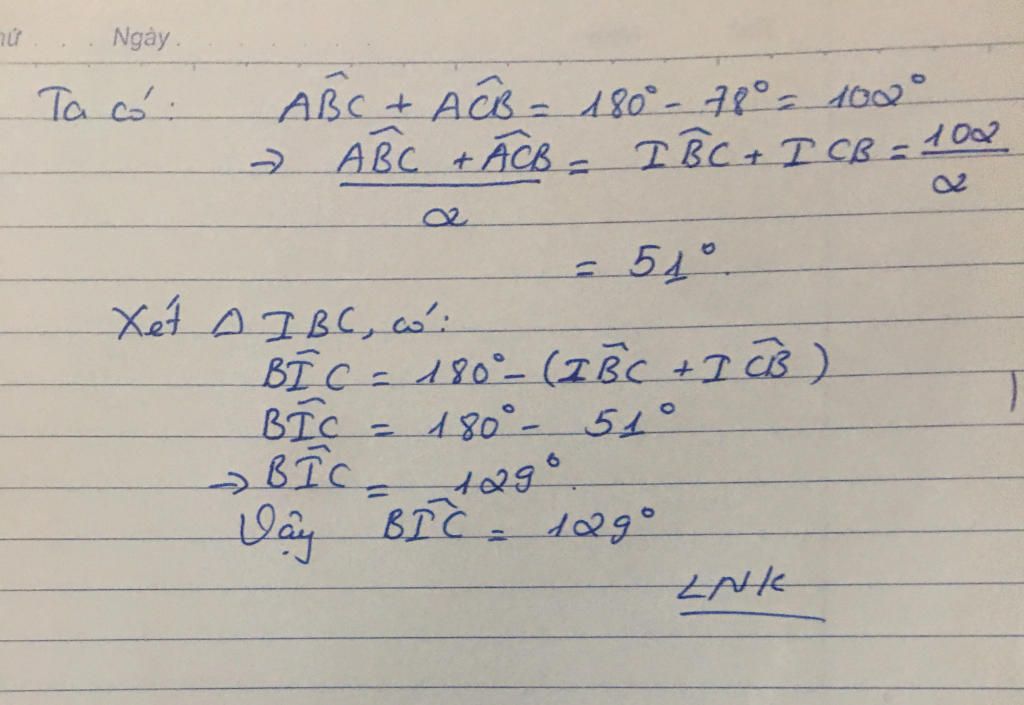 hứ . . . . Ngày.
Ta có: AB̂C + AĈB = 180° - 78° = 102°
→ AB̂C + AĈB / 2 = IB̂C + ICB = 102 / 2
= 51°.
Xét Δ IBC, có:
BÎC = 180° - (IB̂C + IĈB)
BÎC = 180° - 51°
→ BÎC = 129°.
Vậy BÎC = 129°
LNK